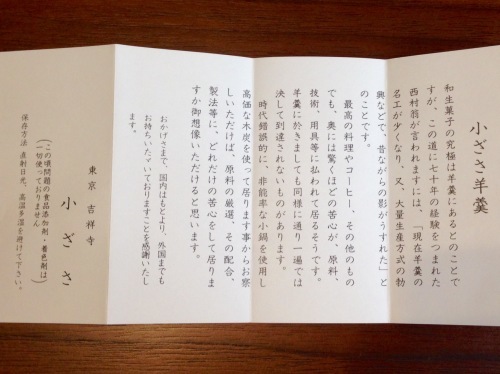 小ざさ羊羹
和生菓子の究極は羊羹にあるとのことで
すが、この道に七十年の経験をつまれた
西村翁が言われますには、「現在羊羹の
名工が少くなり、又、大量生産方式の勃
興などで、昔ながらの影がうすれた」と
のことです。
最高の料理やコーヒー、その他のもの
でも、奥には驚くほどの苦心が、原料、
技術、用具等に払われて居るそうです。
羊羹に於きましても同様に通り一遍では
決して到達されないものがあります。
時代錯誤的に、非能率な小鍋を使用し
高価な木炭を使って居ります事からお察
しいただけば、原料の厳選、その配合、
製法等に、どれだけの苦心をして居りま
すか御想像いただけると思います。
おかげさまで、国内はもとより、外国までも
お持ちいたゞいておりますことを感謝いたし
ます。
東京 吉祥寺
小ざさ
(この頃問題の食品添加剤・着色剤は
一切使っておりません)
保存方法 直射日光、高温多湿を避けて下さい。